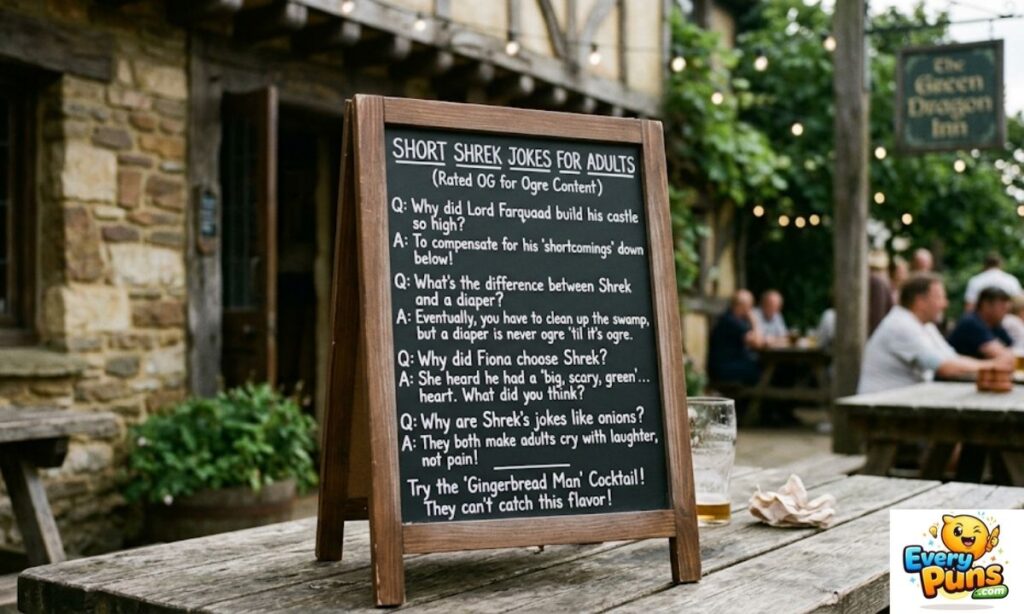 SHORT SHREK JOKES FOR ADULTS
(Rated OG for Ogre Content)
Q: Why did Lord Farquaad build his castle
so high?
A: To compensate for his 'shortcomings' down
below!
Q: What's the difference between Shrek
and a diaper?
A: Eventually, you have to clean up the swamp,
but a diaper is never ogre 'til it's ogre.
Q: Why did Fiona choose Shrek?
A: She heard he had a 'big, scary, green'...
heart. What did you think?
Q: Why are Shrek's jokes like onions?
A: They both make adults cry with laughter,
not pain!
Try the 'Gingerbread Man' Cocktail!
They can't catch this flavor!
The
Green
Dragon
Inn
Every
Puns
.com